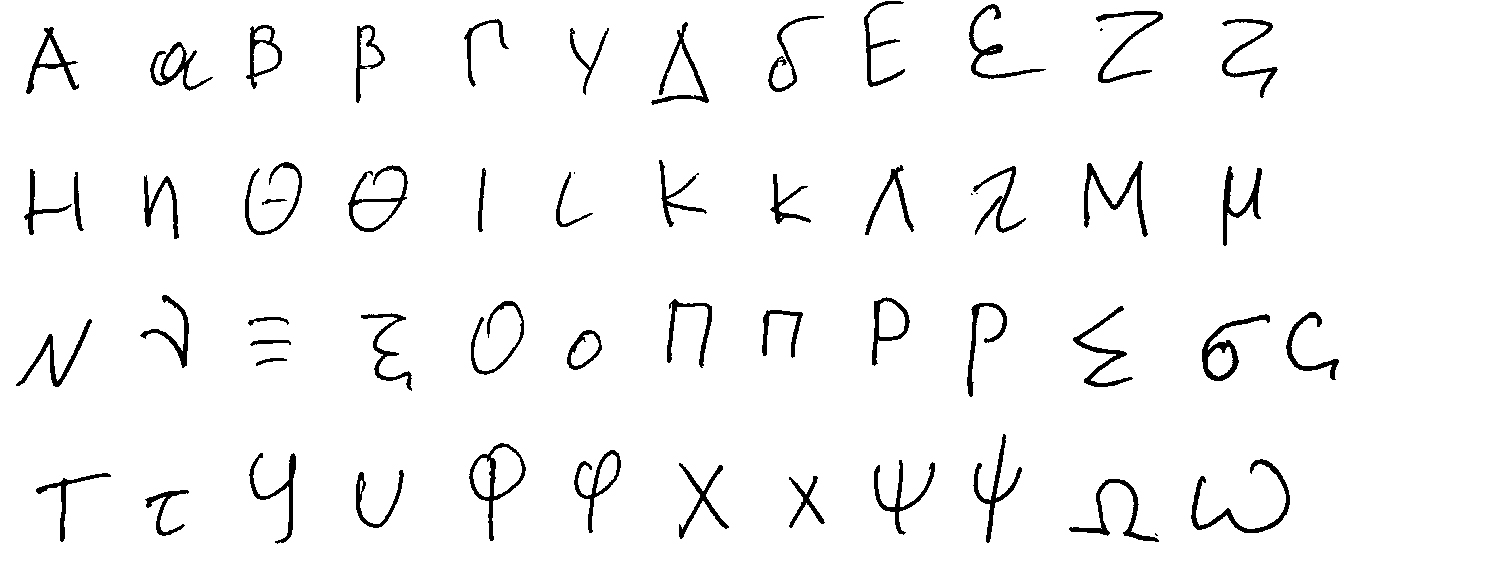 Α α Β β Γ γ Δ δ Ε ε Ζ ζ
Η η Θ θ Ι ι Κ κ Λ λ Μ μ
Ν ν Ξ ξ Ο ο Π π Ρ ρ Σ σ ς
Τ τ Υ υ Φ φ Χ χ Ψ ψ Ω ω